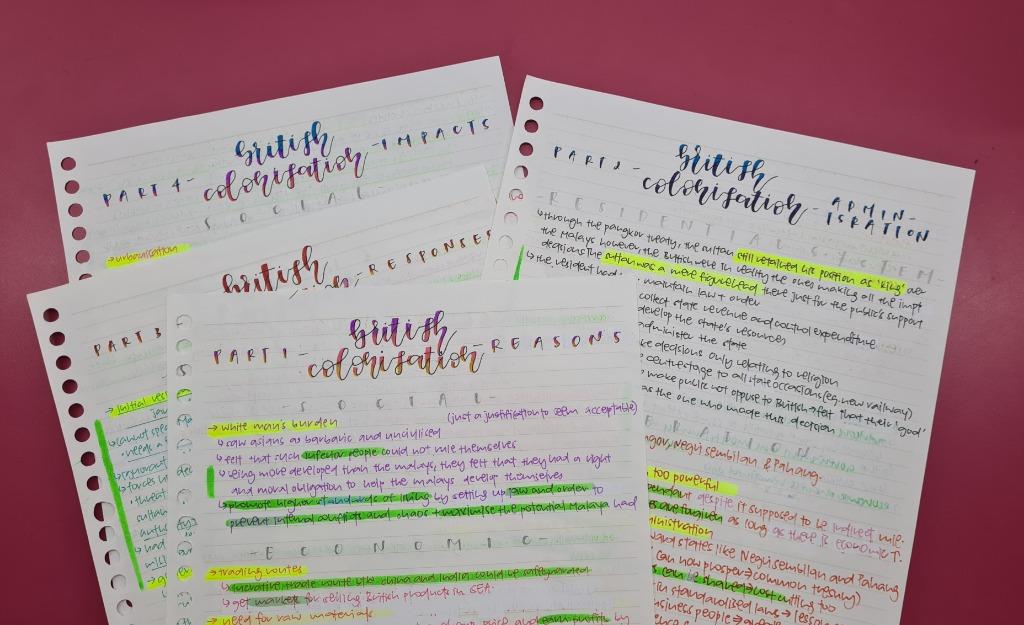 PART 4 - british colonisation - IMPACTS
- SOCIAL -
→ urbanisation
PART 3
british
- RESPONSES
→ initial res
↳ cannot spe
PART 1 - british colonisation - REASONS
- SOCIAL -
→ white man's burden (just a justification to seem acceptable)
↳ saw asians as barbaric and uncivilised
↳ felt that such inferior people could not rule themselves
↳ being more developed than the malays, they felt that they had a right
and moral obligation to help the malays develop themselves
↳ promote higher standards of living by setting up law and order to
prevent internal conflicts and chaos + maximise the potential Malaya had
- ECONOMIC -
→ trading routes
↳ lucrative trade route like china and india could be safeguarded
↳ get markets for selling British products in SEA.
→ need for raw materials
PART 2 - british colonisation - ADMIN-
ISRATION
RESIDENTIAL SYSTEM
↳ through the pangkor treaty, the sultan still retained his position as 'king' over
the Malays however, the British were in reality the ones making all the impt
decisions. The sultan was a mere figurehead there just for the public's support
↳ the resident had
maintain law + order
collect state revenue and control expenditure
develop the state's resources
administer the state
decisions only relating to religion
centrestage to all state occasions (eg. new railway)
make public not oppose to British → felt that their 'good'
as the one who made this decision
Negri Sembilan & Pahang.
too powerful
despite it supposed to be indirect rule.
as long as there is economic T.
states like Negri Sembilan and Pahang
can now prosper → common treasury)
can be shared → cost cutting too
standardised laws →
business people →